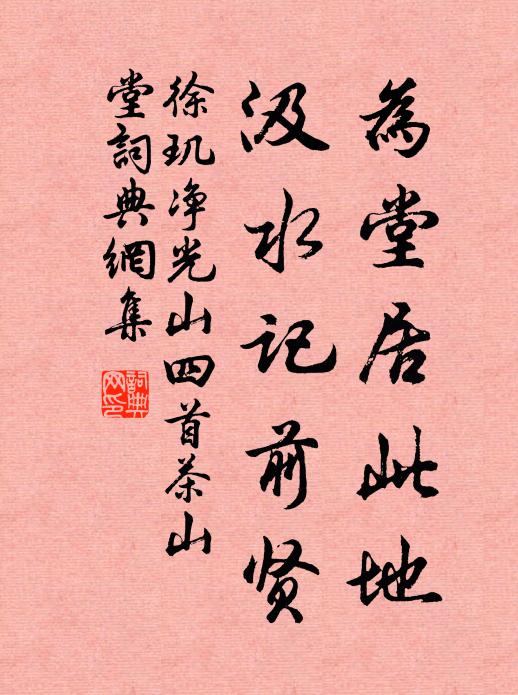 為堂居此地
汲水记前贤
徐玑净光山四首茶山
堂詞典網集
詞典
网印